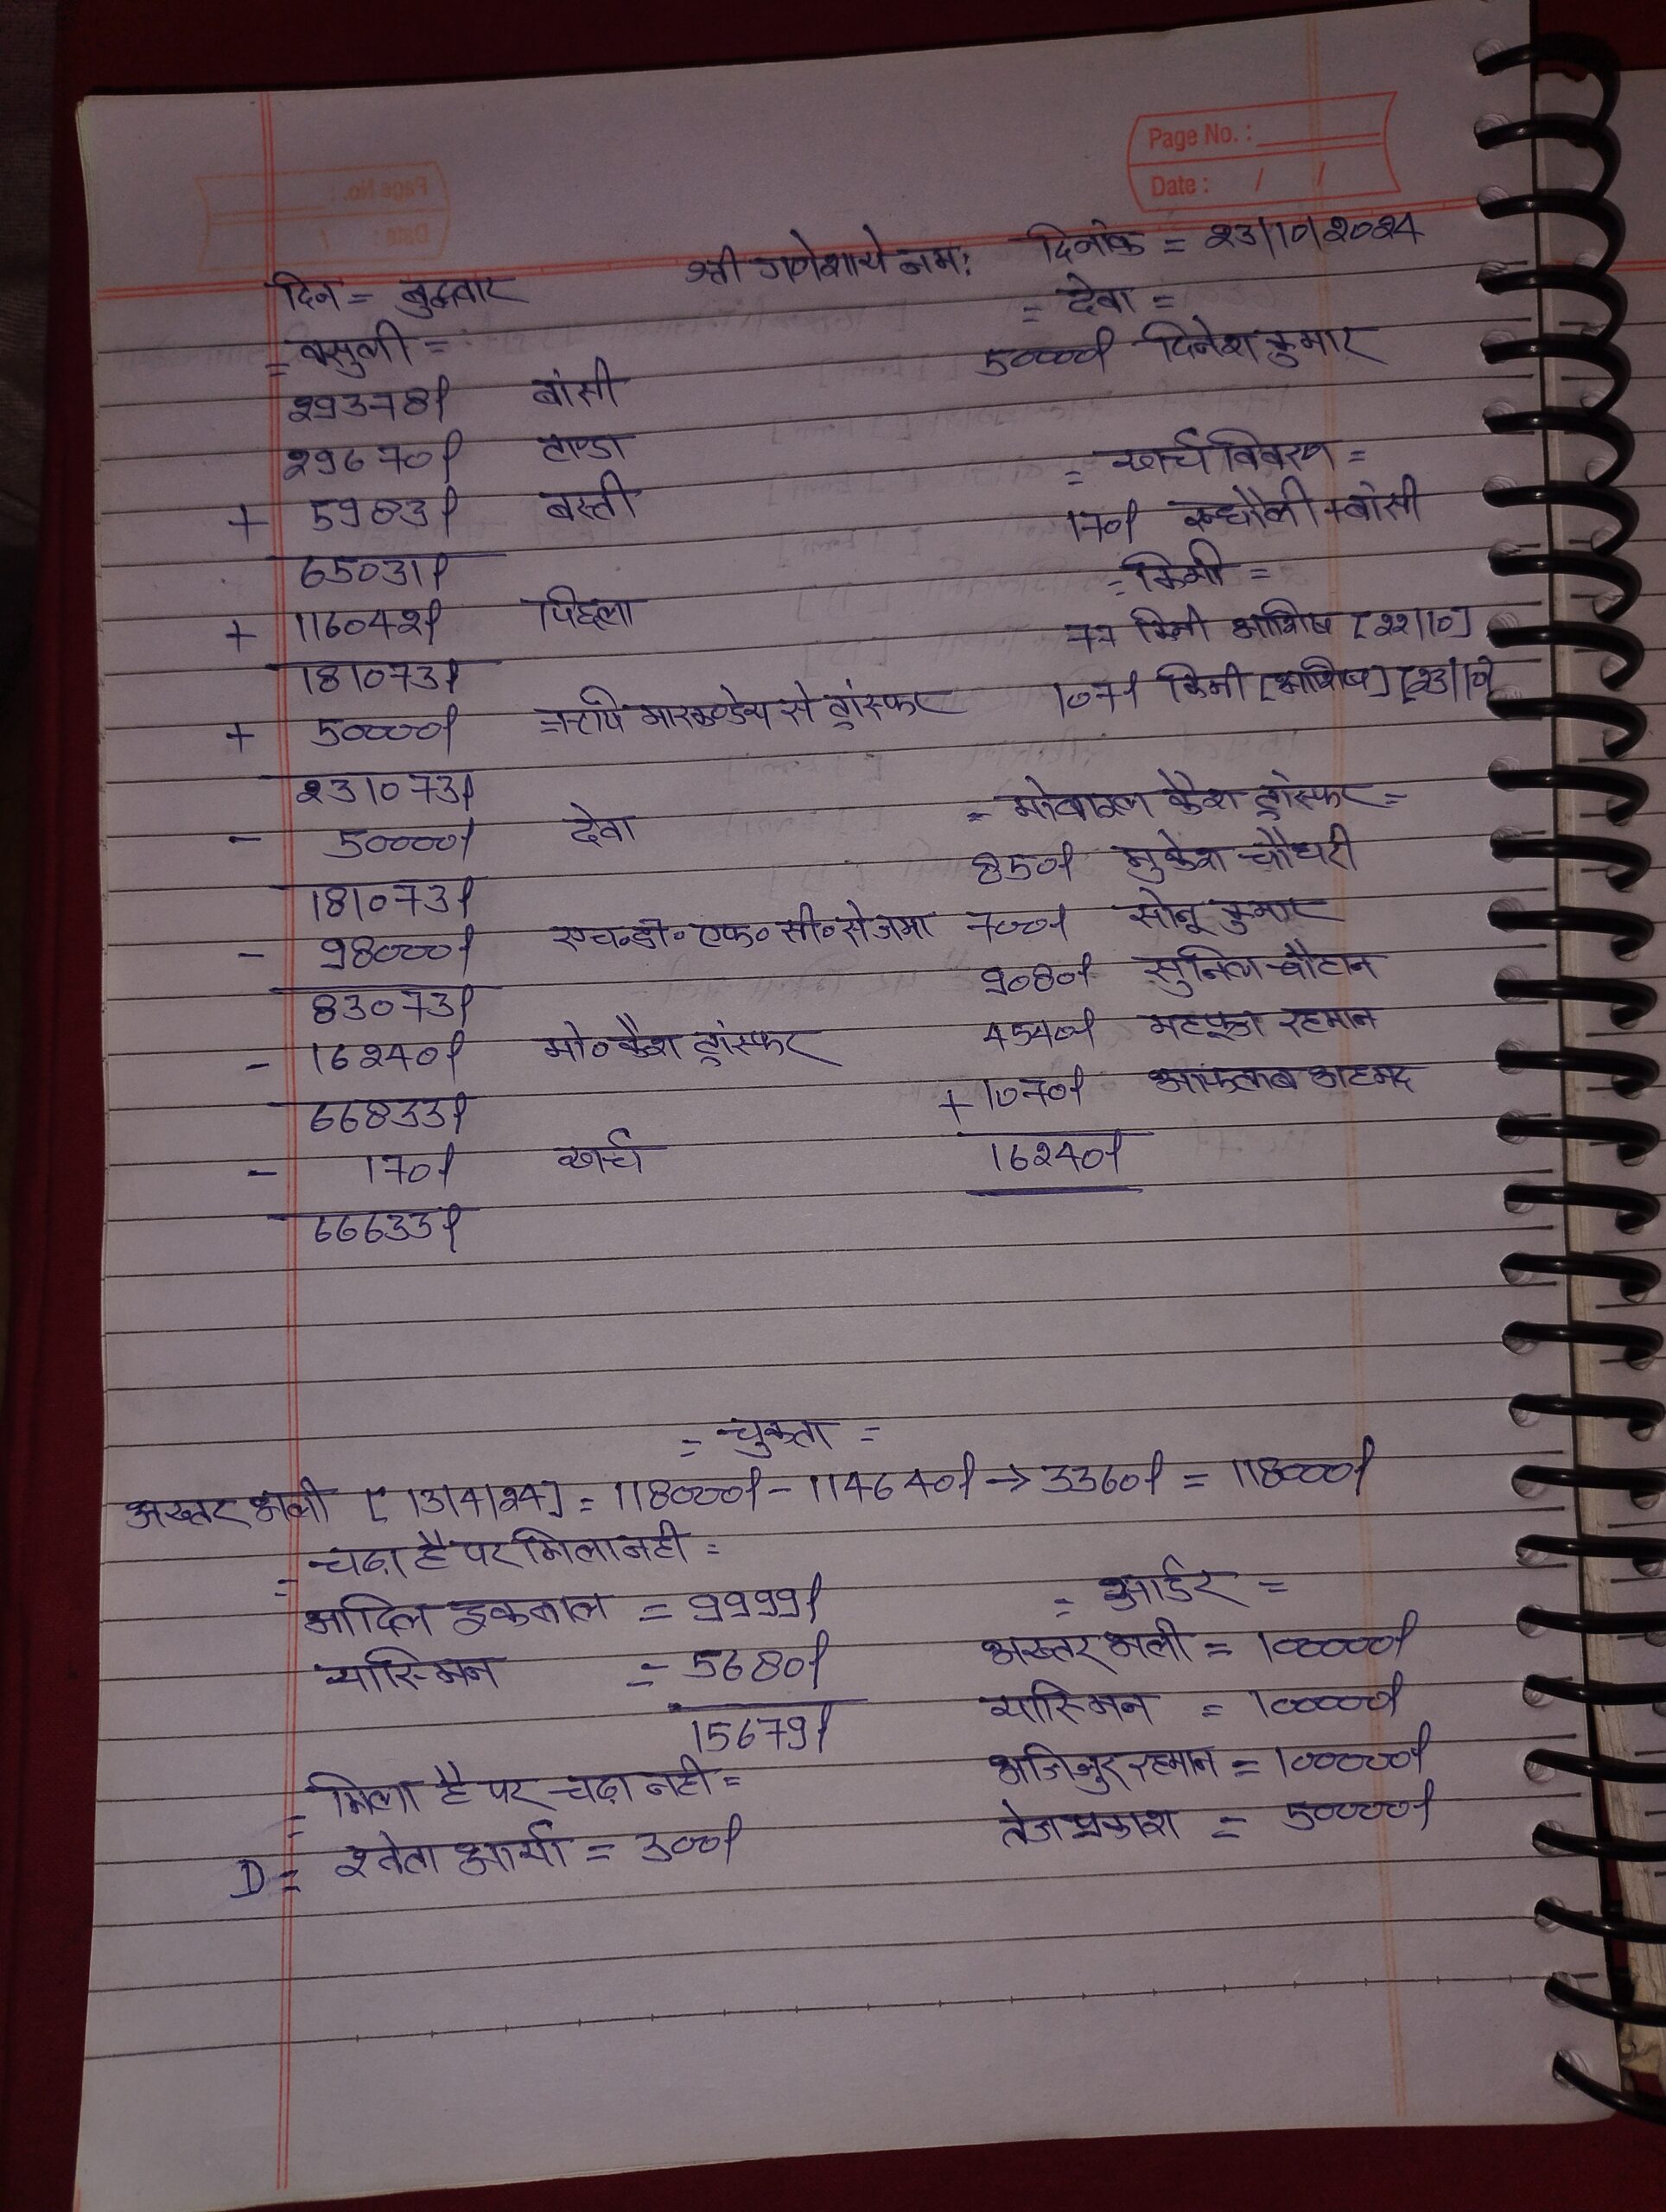 Page No. :
Date : / /
श्री गणेशाये नमः दिनांक = 23/10/2024
दिन = बुद्धवार
= वसुली =
29378/ बांसी
29670/ टाण्डा
+ 5983/ बस्ती
65031/
+ 116042/ पिछला
181073/
+ 50000/ ऋषि मारकण्डेय से ट्रांस्फर
231073/
- 50000/ देवा
181073/
- 98000/ एच॰डी॰एफ॰सी॰से जमा
83073/
- 16240/ मो॰कैश ट्रांस्फर
66833/
- 170/ खर्च
66633/
= देवा =
50000/ दिनेश कुमार
= खर्च विवरण =
170/ रुधौली + बांसी
= किमी =
77 किमी आशिष [22/10]
107/ किमी [आशिष] [23/10]
= मोबाइल कैश ट्रांस्फर =
850/ मुकेश चौधरी
700/ सोनू कुमार
9080/ सुनिल चौहान
4540/ महफूज रहमान
+ 1070/ आफताब अहमद
16240/
= चुकता =
अख्तर अली [13/4/24] = 118000/ - 114640/ → 3360/ = 118000/
= चढ़ा है पर मिला नही =
आदिल इकबाल = 9999/
यास्मिन = 5680/
15679/
= मिला है पर चढ़ा नही =
D = श्वेता आर्या = 300/
= आर्डर =
अख्तर अली = 100000/
यास्मिन = 100000/
अजिजुर रहमान = 100000/
तेज प्रकाश = 50000/